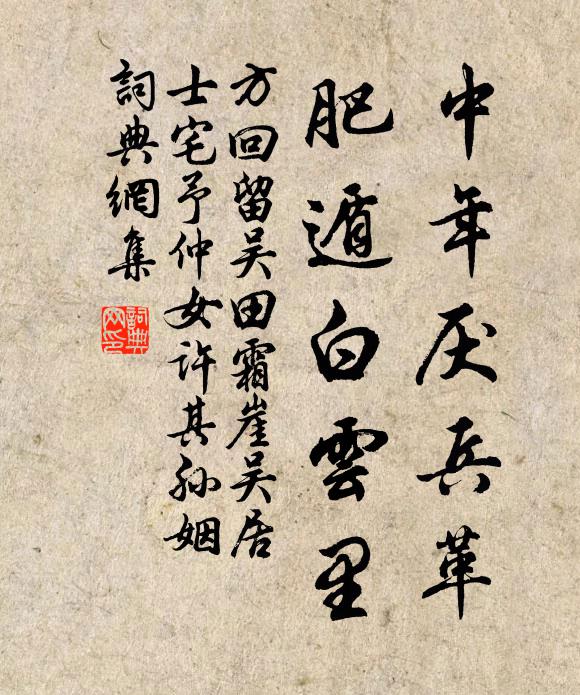 中年厌兵革
肥遁白雲里
方回留吴田霜崖吴居
士宅予仲女许其孙姻
詞典網集
詞典網印